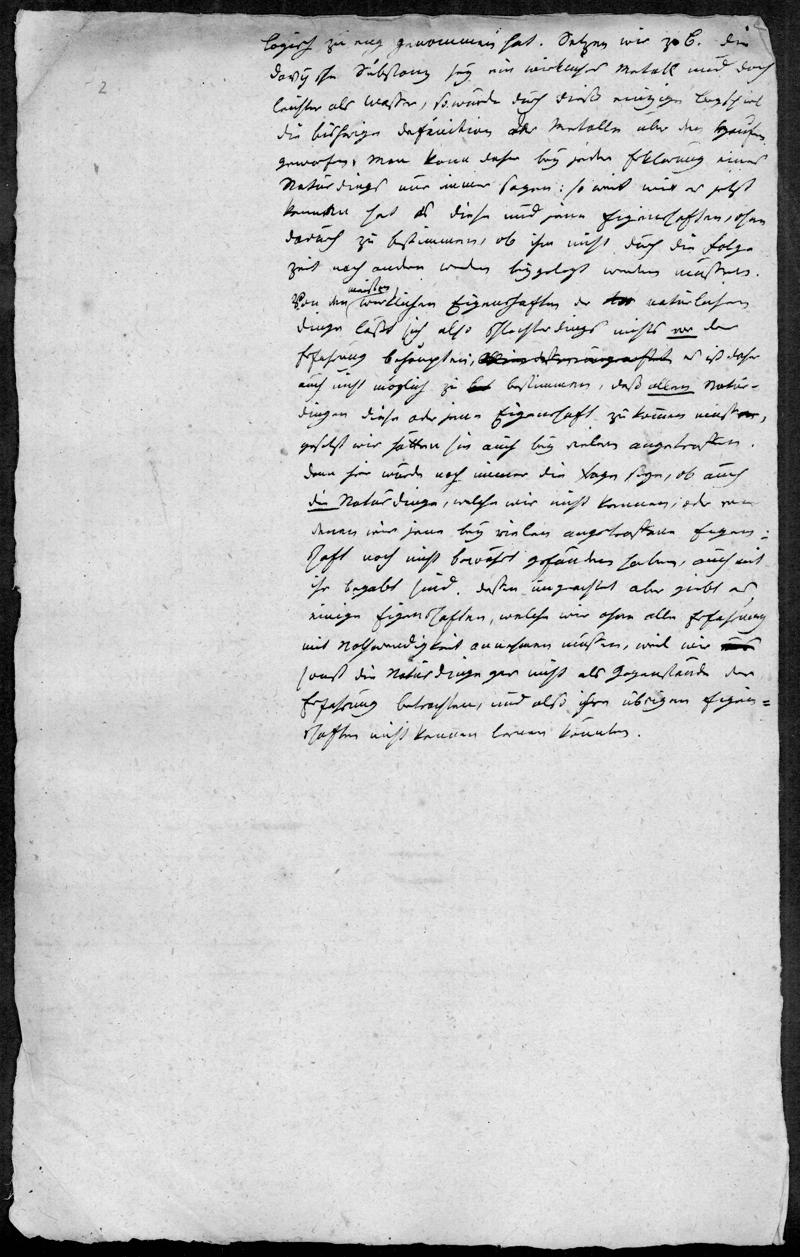 2
logisch zu eng genommen hat. Setzen wir z. B. die
Davysche Substanz sey ein wirkliches Metall und doch
leichter als Wasser, so würde durch dieß einzige Beyspiel
die bisherige Definition der Metalle über den Haufen
geworfen, Man kann daher bey jeder Erklärung eines
Naturdings nur immer sagen: so weit wir es jetzt
kennen hat es diese und jene Eigenschaften, ohne
dadurch zu bestimmen, ob ihm nicht durch die Folge
zeit noch andere werden beygelegt werden müssen.
Von den meisten wirklichen Eigenschaften der natürlichen
Dinge läßt sich also schlechterdings nichts vor der
Erfahrung behaupten, es ist daher
auch nicht möglich zu bestimmen, daß allen Natur-
dingen diese oder jene Eigenschaft zukommen müsse,
gesetzt wir hätten sie auch bey vielen angetroffen.
denn hier würde noch immer die Frage seyn, ob auch
die Naturdinge, welche wir nicht kennen, oder von
denen wir jene bey vielen angetroffene Eigen=
schaft noch nicht bewährt gefunden haben, auch mit
ihr begabt sind. dessen ungeachtet aber giebt es
einige Eigenschaften, welche wir ohne alle Erfahrung
mit Nothwendigkeit annehmen müssen, weil wir
sonst die Naturdinge gar nicht als Gegenstände der
Erfahrung betrachten, und also ihre übrigen Eigen=
schaften nicht kennen lernen könnten.